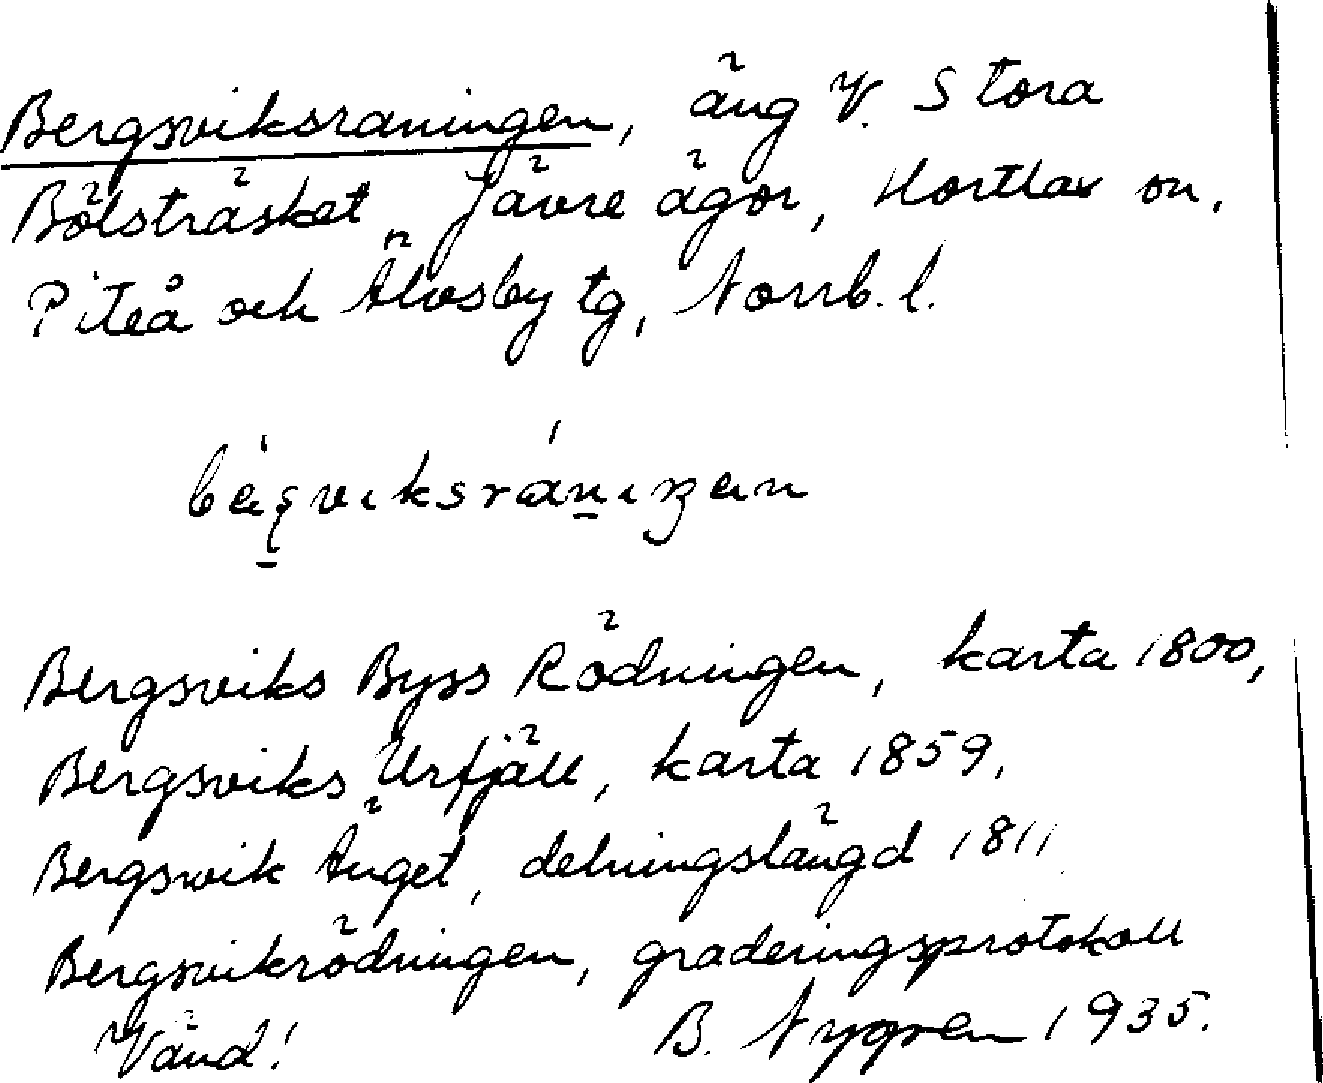 Bergsviksraningen, äng V. Stora
Bölsträsket, Jävre ägor, Hortlax sn,
Piteå och Älvsby tg, Norrb. l.
Bergsviks Byss Rödningen, karta 1800,
Bergsviks Urfjäll, karta 1859,
Bergsvik Änget, delningslängd 1811
Bergsvikrödningen, graderingsprotokoll
Vänd! B. Nygren 1935.